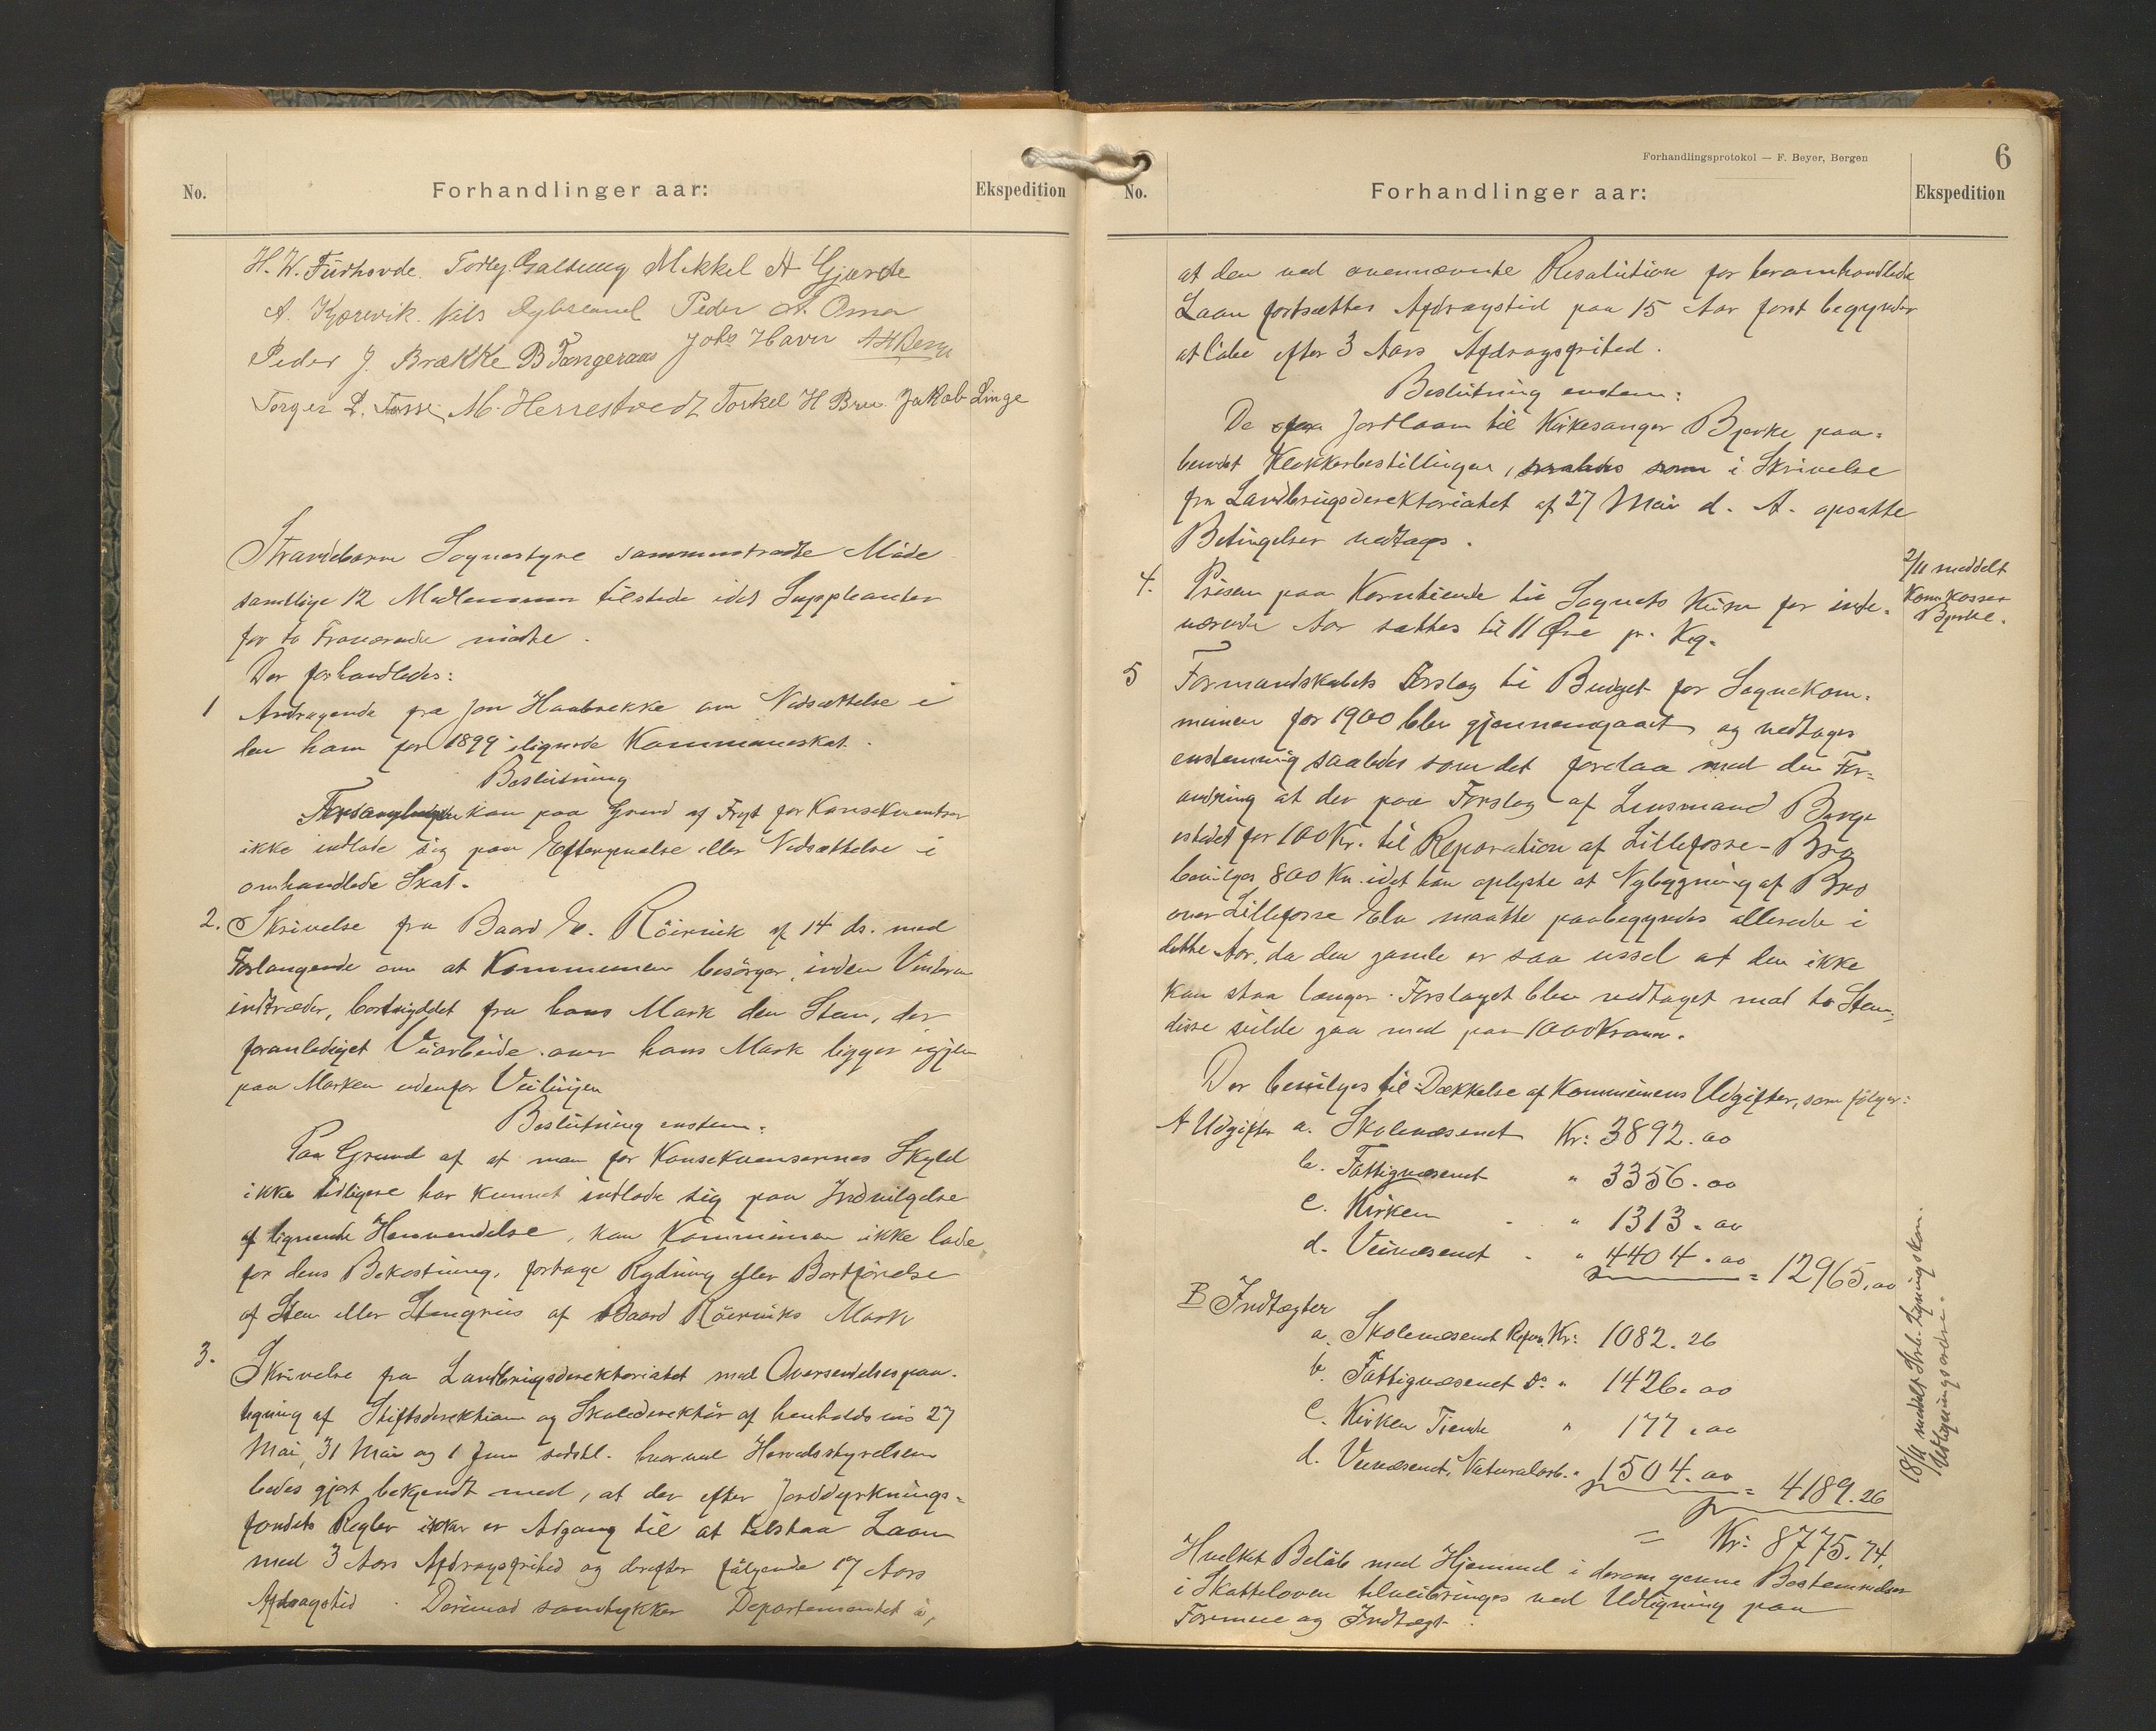 No.
Forhandlinger aar:
Ekspedition
H. W. Fürhovde. Torlg. Galtung Mikkel A Gjerde
A. Kjærevik. Nils Peder A. Oma
Peder J. Brække B Tangeraas Johs Havn
Torger L. Fosse, M. Herrestvedt Torkel H Bru. Jakob Linge
Strandebarm Sognestyre sammentraadte Møde
samtlige 12 Medlemmer tilstede idet Suppleanter
for to Fraværende mødte.
Der forhandledes:
1 Andragende fra Jon Haabrekke om Nedsættelse i
den ham for 1899 ilignede Kommuneskat.
Beslutning
kan paa Grund af Frygt for Konsekventser
ikke indlade sig paa Eftergivelse eller Nedsættelse i
omhandlede Skat.
2. Skrivelse fra Baard E. Röirvik af 14 ds. med
Forlangende om at Kommunen besörger, inden Vinteren
indtræder, bortryddet fra hans Mark den Sten, der
foranlediget Veiarbeide over hans Mark ligger igjen
paa Marken udenfor Veilinjen
Beslutning enstem:
Paa Grund af at man for Konsekvensernes Skyld
ikke tidligere har kunnet indlade sig paa Indvilgelse
af lignende Henvendelse, kan Kommunen ikke lade
for dens Bekostning, fortage Rydning eller Bortförelse
af Sten eller Stengrus af Baard Röirviks Mark
3. Skrivelse fra Landbrugsdirektoriatet med Oversendelsespaa-
tegning af Stiftsdirektion og Skoledirektör af henholdsvis 27
Mai, 31 Mai og 1 Juni sidstl. hvorved Herredsstyrelsen
bedes gjort bekjendt med, at der efter Jorddyrknings-
fondets Regler ikke er Adgang til at tilstaa Laan
med 3 Aars Afdragsfrihed og derefter fölgende 17 Aars
Afdragstid. Derimod samtykker Departementet i,
Forhandlingsprotokol — F. Beyer, Bergen
6
No.
Forhandlinger aar:
Ekspedition
at den ved ovennævnte Resolution for heromhandlede
Laan fortsættes Afdragstid paa 15 Aar först begynder
at löbe efter 3 Aars Afdragsfrihed.
Beslutning enstem:
De for Jordlaan til Kirkesanger Bjerke paa-
beroet Klokkerbestillingen, i Skrivelse
fra Landbrugsdirektoriatet af 27 Mai d. A. opsatte
Betingelser vedtages.
4. Prisen paa Korntiende til Sognets Kirke for inde-
værende Aar sættes til 11 Øre pr. Kg.
2/11 meddelt
Kom. Kasser
Bjerke.
5 Formandskabets Forslag til Budget for Sognekom-
munen for 1900 blev gjennemgaaet og vedtages
enstemmig saaledes som det forelaa med den For-
andring at der paa Forslag af Lensmand Berge
istedet for 100 Kr. til Reparation af Lillefosse-Bro
bevilges 800 Kr. idet han oplyste at Nybygning af Bro
over Lillefosse Elv maatte paabegyndes allerede i
dette Aar, da den gamle er saa ussel at den ikke
kan staa længer. Forslaget blev vedtaget mod to Stem.,
disse vilde gaa med paa 1000 Kroner.
Der bevilges til Dækkelse af Kommunens Udgifter, som fölger:
A Udgifter a. Skolevæsenet Kr: 3892.00
b. Fattigvæsenet " 3356.00
c. Kirken " 1313.00
d. Veivæsenet " 4404.00 = 12965.00
B Indtægter
a. Skolevæsenet Refun. Kr: 1082.26
b. Fattigvæsenet Do " 1426.00
c. Kirken Tiende " 177.00
d. Veivæsenet, Naturalarb. " 1504.00 = 4189.26
= Kr: 8775.74.
Hvilket Belöb med Hjemmel i derom givne Bestemmelser
i Skatteloven tilveibringes ved Udligning paa
Formue og Indtægt.
18/11 meddelt Ligningskom.
Udligningsordre.